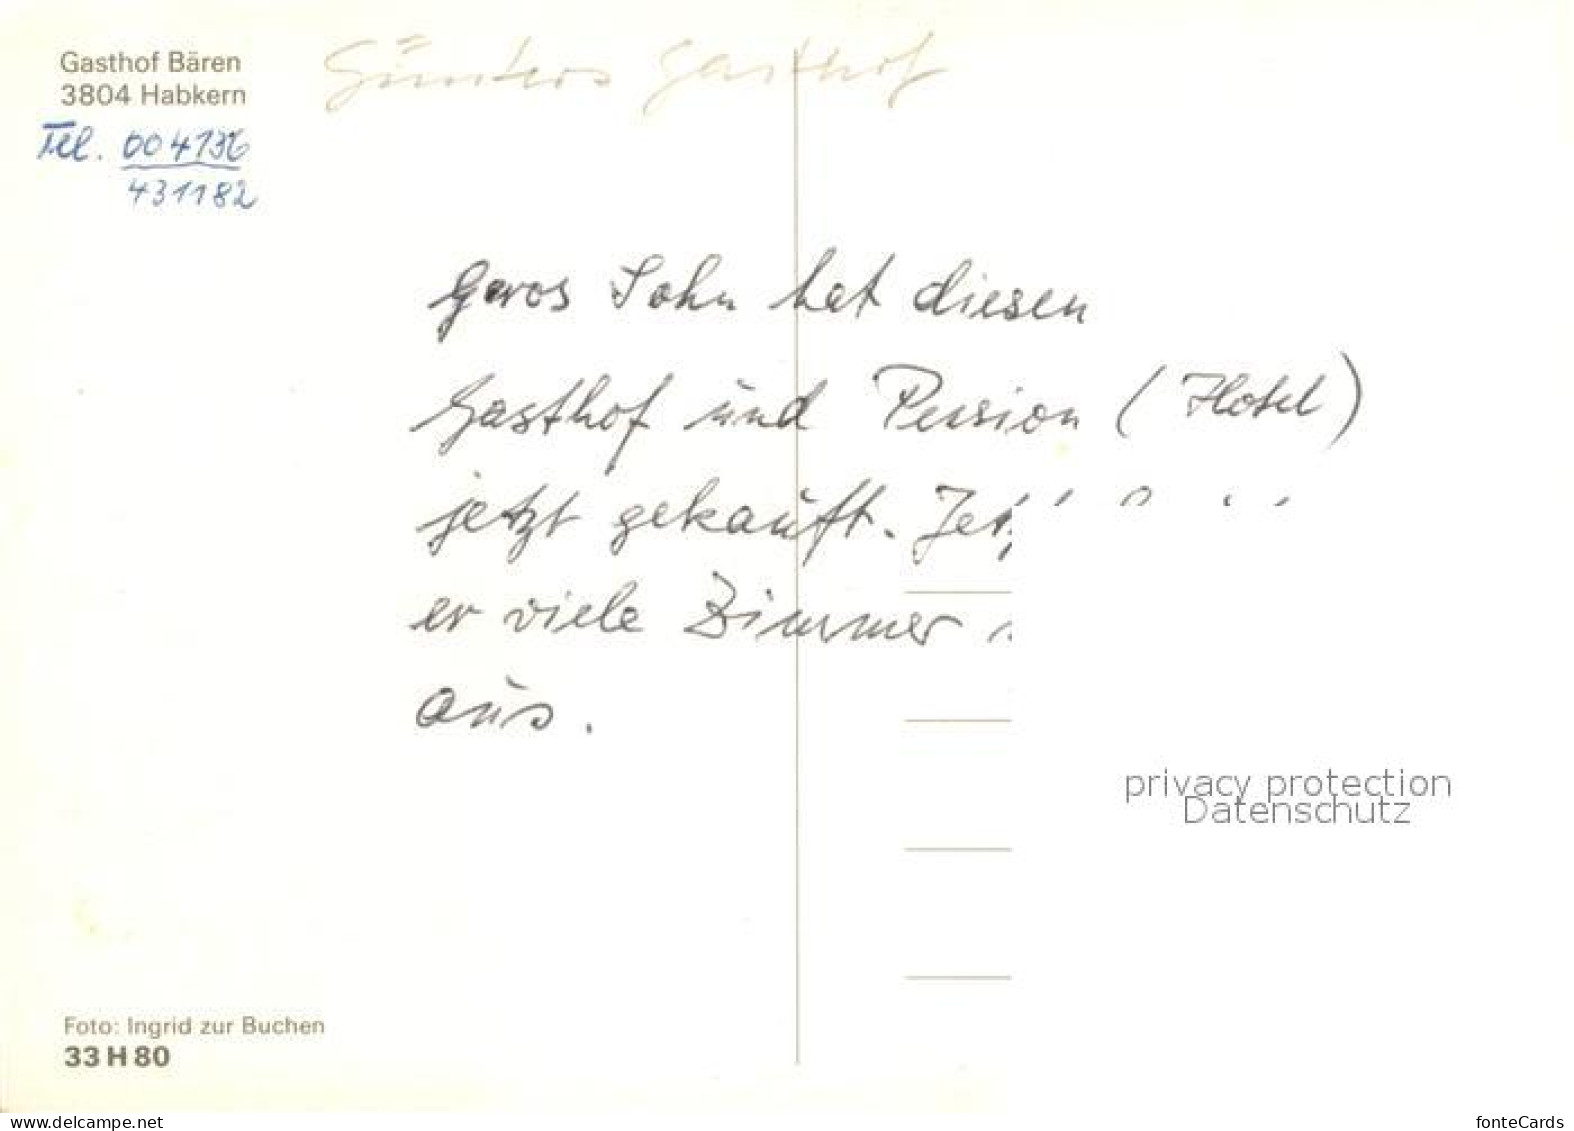 Gasthof Bären
3804 Habkern
Günters Gasthof
Tel. 004136
431182
Geros Sohn hat diesen
Gasthof und Pension (Hotel)
jetzt gekauft.
er viele Zimmer
aus.
privacy protection
Datenschutz
Foto: Ingrid zur Buchen
33 H 80
www.delcampe.net
fonteCards